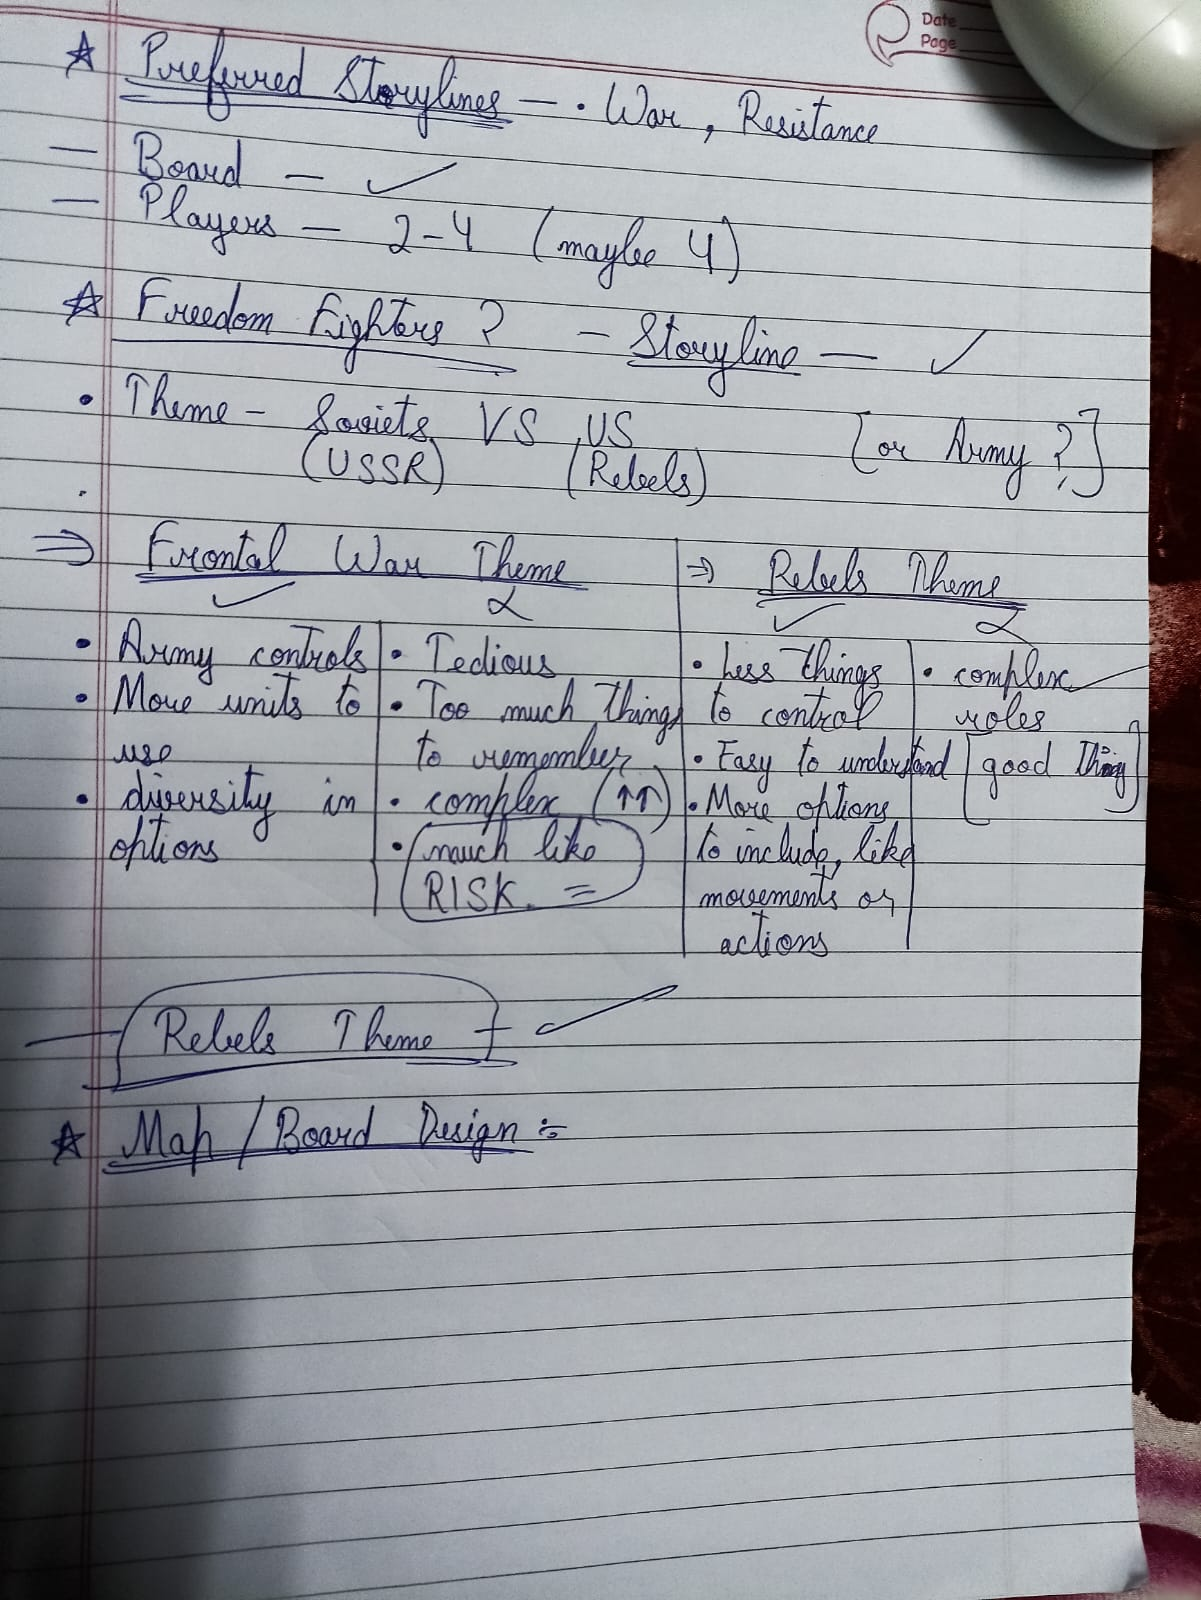 Date
Page
☆ Preferred Storylines — • War, Resistance
— Board — ✓
— Players — 2-4 (maybe 4)
☆ Freedom Fighters ? — Storyline — ✓
• Theme — Soviets VS US [or Army ?]
(USSR) (Rebels)
⇒ Frontal War Theme
✓
• Army controls
• More units to
use
• diversity in
options
• Tedious
• Too much things
to remember
• complex (↑↑)
• much like
RISK. =
⇒ Rebels Theme
✓
• Less things
to control
• Easy to understand
• More options
to include, like
movements or
actions
• complex
roles
[good Thing]
— Rebels Theme — ✓
☆ Map / Board Design :-